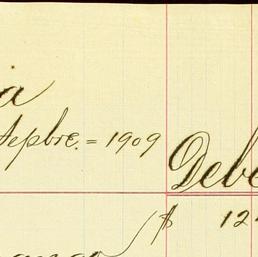 a
Sepbre. = 1909
Debe
$ 12